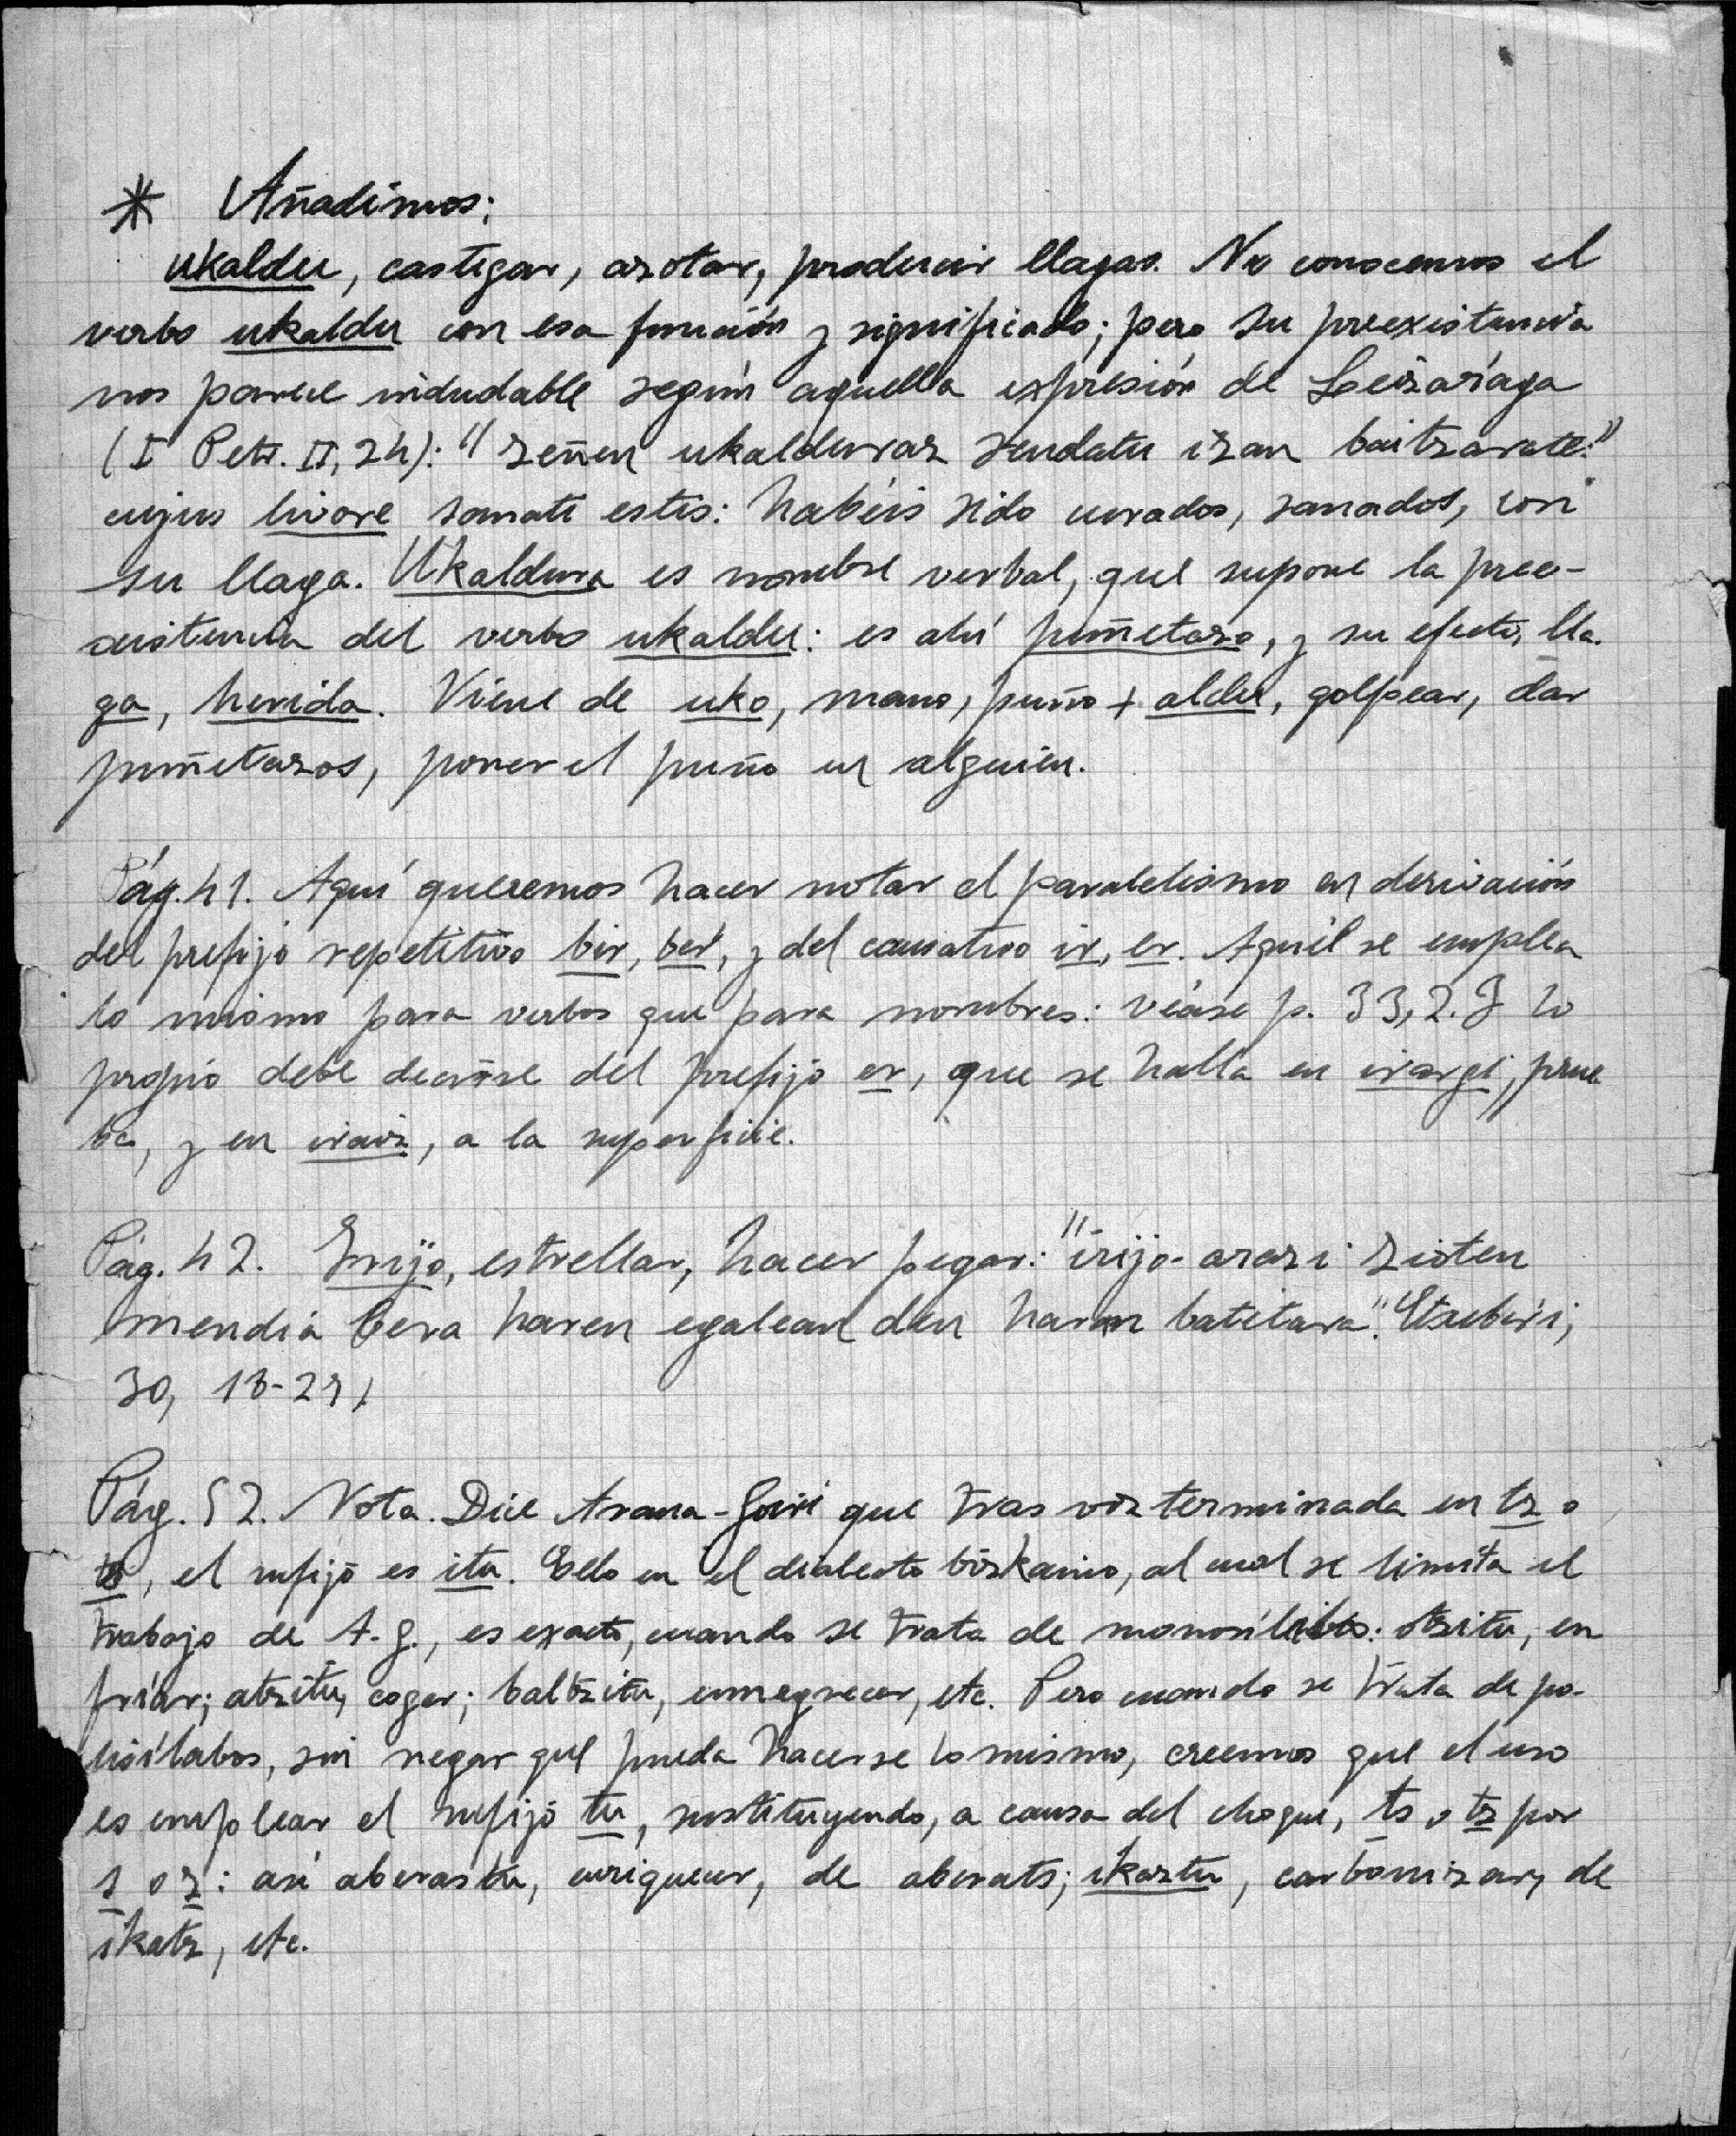 * Añadimos:
ukaldu, castigar, azotar, producir llagas. No conocemos el
verbo ukaldu con esa función y significado; pero su preexistencia
nos parece indudable según aquella expresión de Leizaŕaga
(I Petr. II, 24): "zeñen ukalduraz sendatu izan baitzarate:"
cujus livore sanati estis: habéis sido curados, sanados, con
su llaga. Ukaldura es nombre verbal, que supone la pree-
xistencia del verbo ukaldu: es ahí puñetazo, y su efecto, lla-
ga, herida. Viene de uko, mano, puño + aldu, golpear, dar
puñetazos, poner el puño en alguien.
Pág. 41. Aquí queremos hacer notar el paralelismo en derivación
del prefijo repetitivo bir, beŕ, y del causativo ir, er. Aquél se emplea
lo mismo para verbos que para nombres: véase p. 33, 2. Y lo
propio debe decirse del prefijo er, que se halla en , prue
ba, y en , a la superficie.
Pág. 42. , estrellar, hacer pegar: "irijo-arazi zioten
mendia bera haren egalean den harri batetara". Etxebeŕi,
30, 
Pág. 52. Nota. Dice Arana-Goiri que tras voz terminada en tz o
ts, el sufijo es itu. Ello en el dialecto bizkaino, al cual se limita el
trabajo de A.G., es exacto, cuando se trata de monosílabos: otzitu, en
friar; atzitu, coger; baltzitu, ennegrecer, etc. Pero cuando se trata de po-
lisílabos, sin negar que pueda hacerse lo mismo, creemos que el uso
es emplear el sufijo tu, sustituyendo, a causa del choque, ts o tz por
s o z: así aberastu, enriquecer, de aberats; ikaztu, carbonizar, de
ikatz, etc.